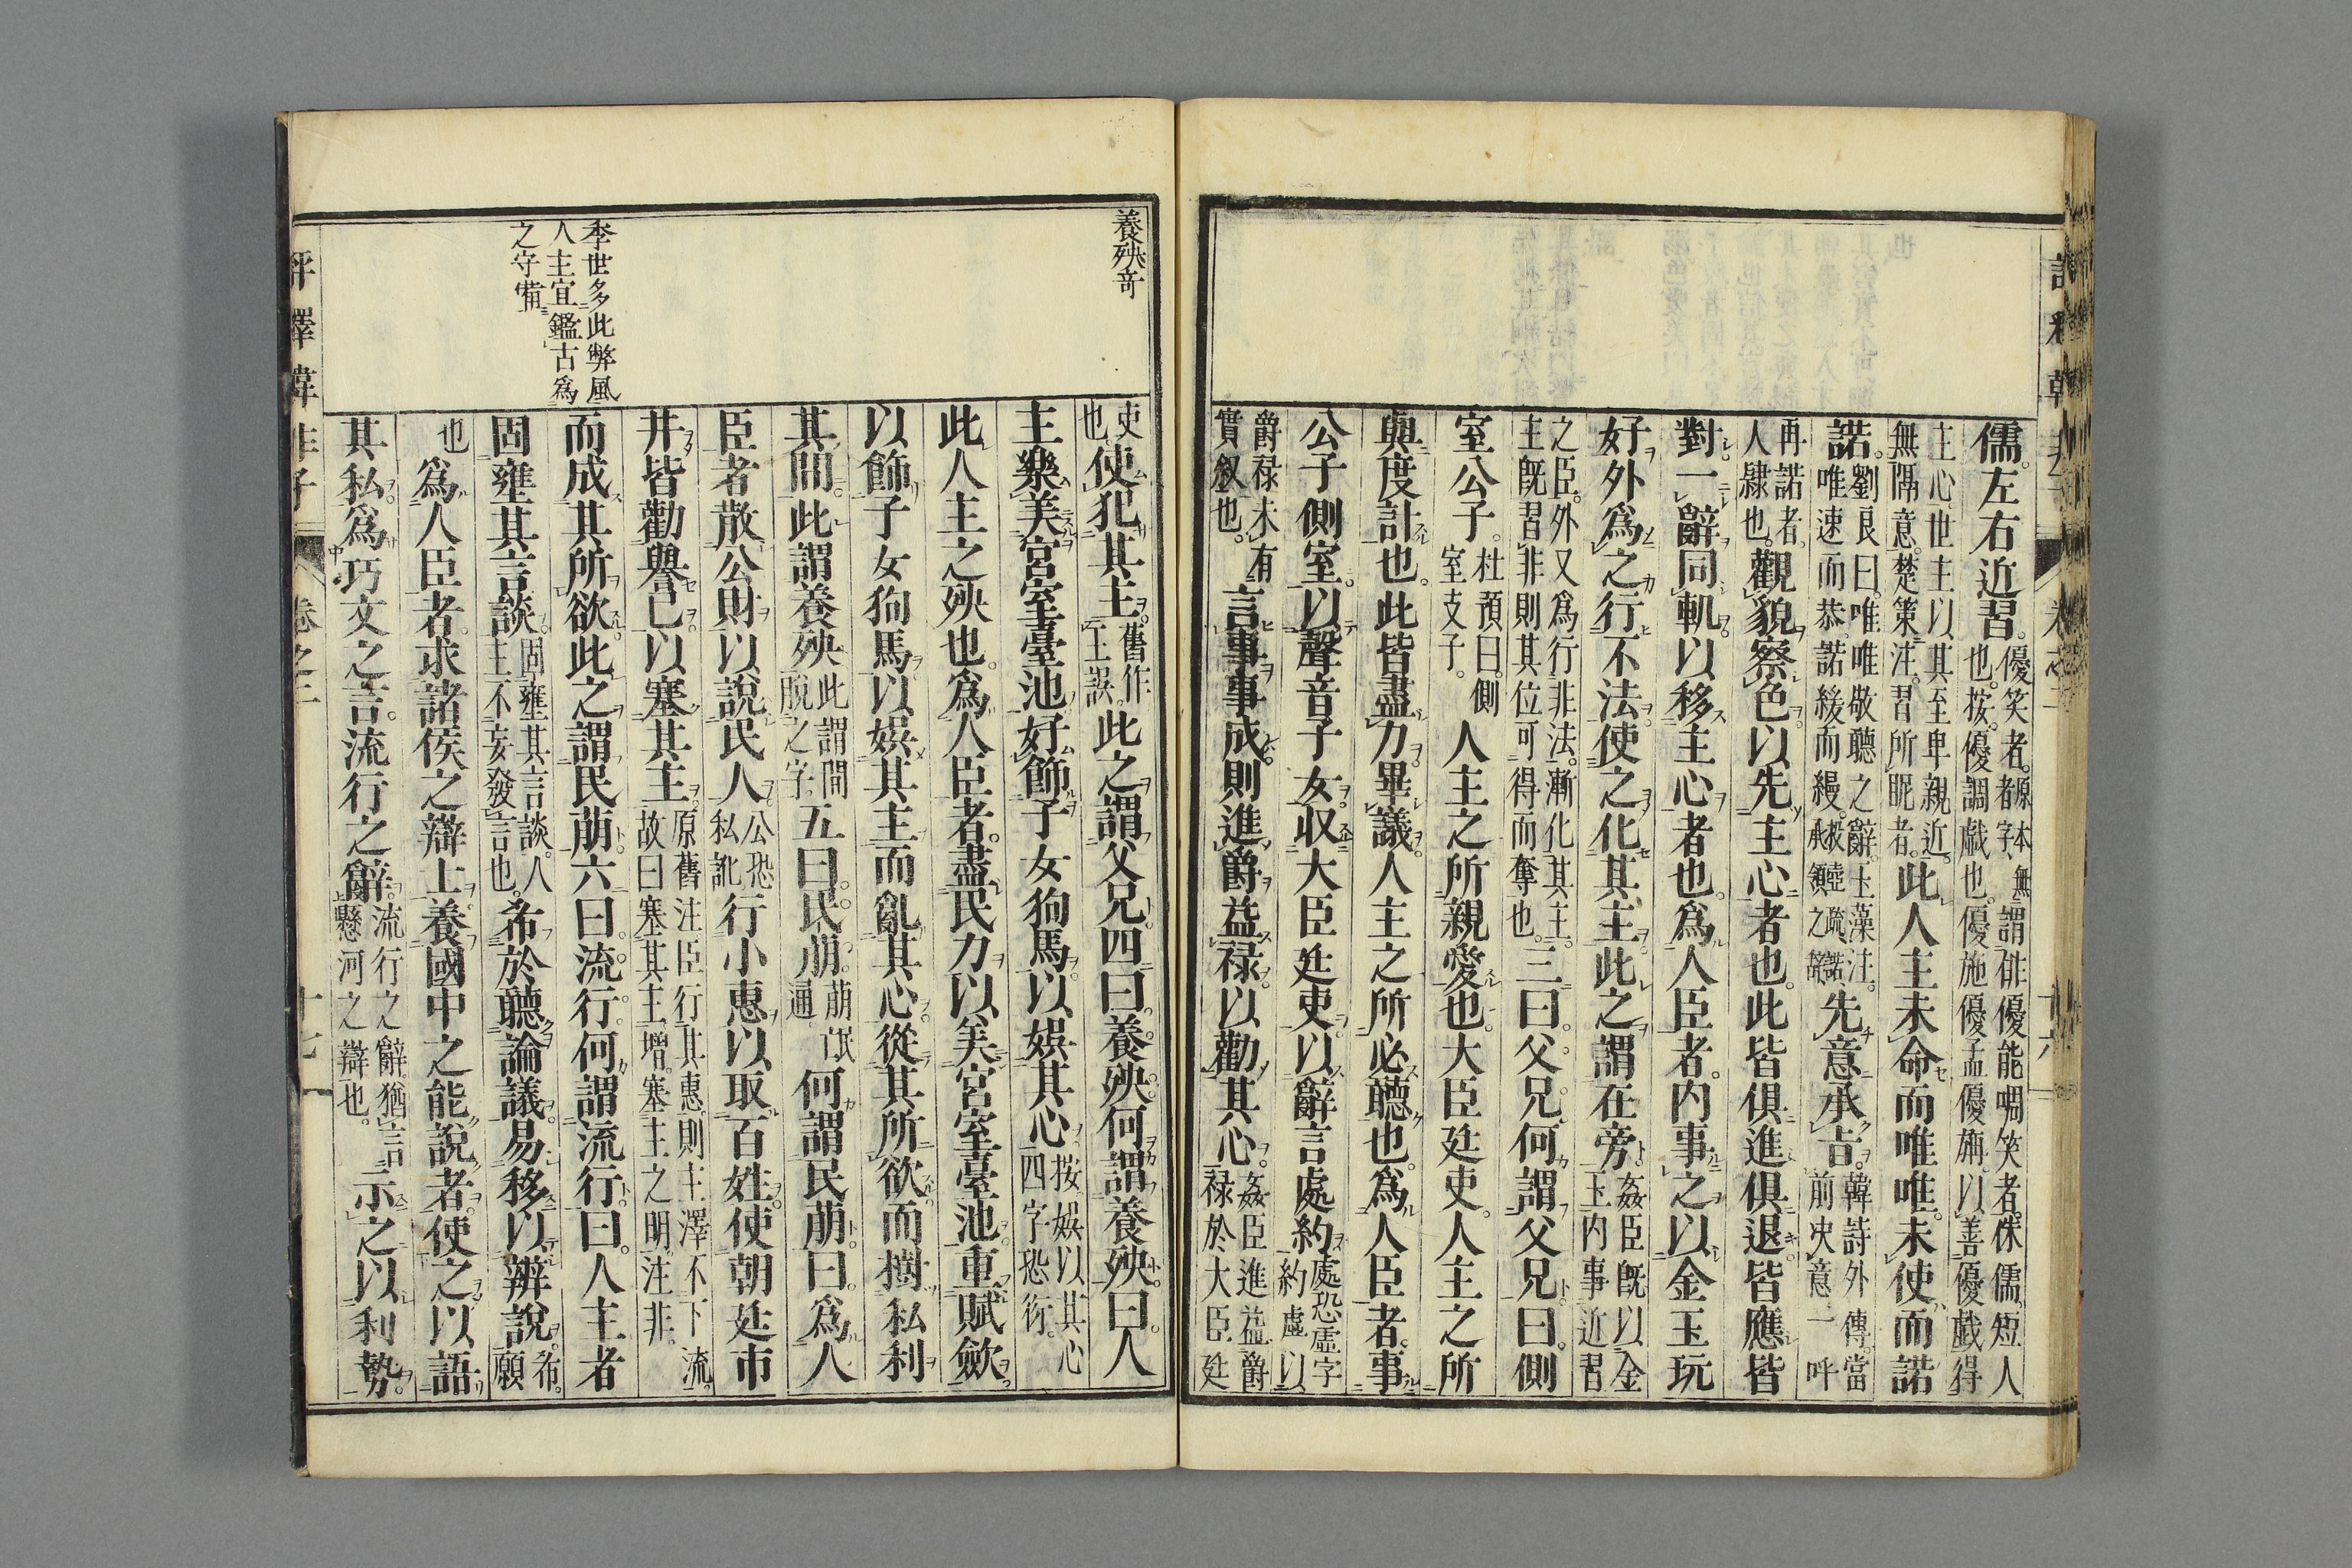 儒。左右近習。優笑者。原本無者字、謂俳優能啁笑者。侏儒。短人也。按。優調戯也。優施優孟優旃。以善優戯得
主心。世主以其至卑親近。無隔意。楚策注。習所昵者。此人主未命而唯唯。未使而諾
諾。劉良曰。唯唯敬聽之辭。玉藻注。唯速而恭。諾緩而縵。先意承旨。韓詩外傳。當前決意一呼
再諾者。人隷也。觀貌察色。以先主心者也。此皆俱進俱退。皆應皆
對。一辭同軌。以移主心者也。爲人臣者。内事之以金玉玩
好外爲之行不法。使之化其主。此之謂在旁。姦臣既以金玉内事近習
之臣。外又爲行非法。漸化其主。主既習非。則其位可得而奪也。三曰。父兄。何謂父兄。曰。側
室公子。杜預曰。側室支子。人主之所親愛也。大臣廷吏。人主之所
與度計也。此皆盡力畢議。人主之所必聽也。爲人臣者。事
公子側室。以聲音子女。収大臣廷吏。以辭言處約。處恐虚字約虚以
爵禄未有實叙也。言事事成。則進爵益禄。以勸其心。姦臣進益爵禄於大臣廷
評釋韓非子 卷之二 十六
養殃奇
吏也。使犯其主。舊作王誤。此之謂父兄。四曰。養殃。何謂養殃。曰。人
主樂美宮室臺池。好飾子女狗馬。以娯其心。按娯以其心四字恐衍。
此人主之殃也。爲人臣者。盡民力以美宮室臺池。重賦歛
以飾子女狗馬。以娯其主而亂其心。從其所欲。而樹私利
其間。此謂養殃。此謂間脱之字。五曰。民萠。萠氓通。何謂民萠。曰。爲人
臣者散公財。以說民人。公恐私訛。行小惠以取百姓。使朝廷市
井皆勸譽己。以塞其主。原舊注臣行其惠。則主澤不下流。故曰塞其主。増。塞主之明。注非。
而成其所欲。此之謂民萠。六曰。流行。何謂流行。曰。人主者
固壅其言談。固壅其言談。人主不妄發言也。希於聽論議。易移以辨說。希。願
也。爲人臣者。求諸侯之辯士。養國中之能說者。使之以語
其私。爲巧文之言。流行之辭。流行之辭。猶言懸河之辯也。示之以利勢。
季世多此弊風
人主宜鑑古爲
之守備
評釋韓非子 卷之二 十七